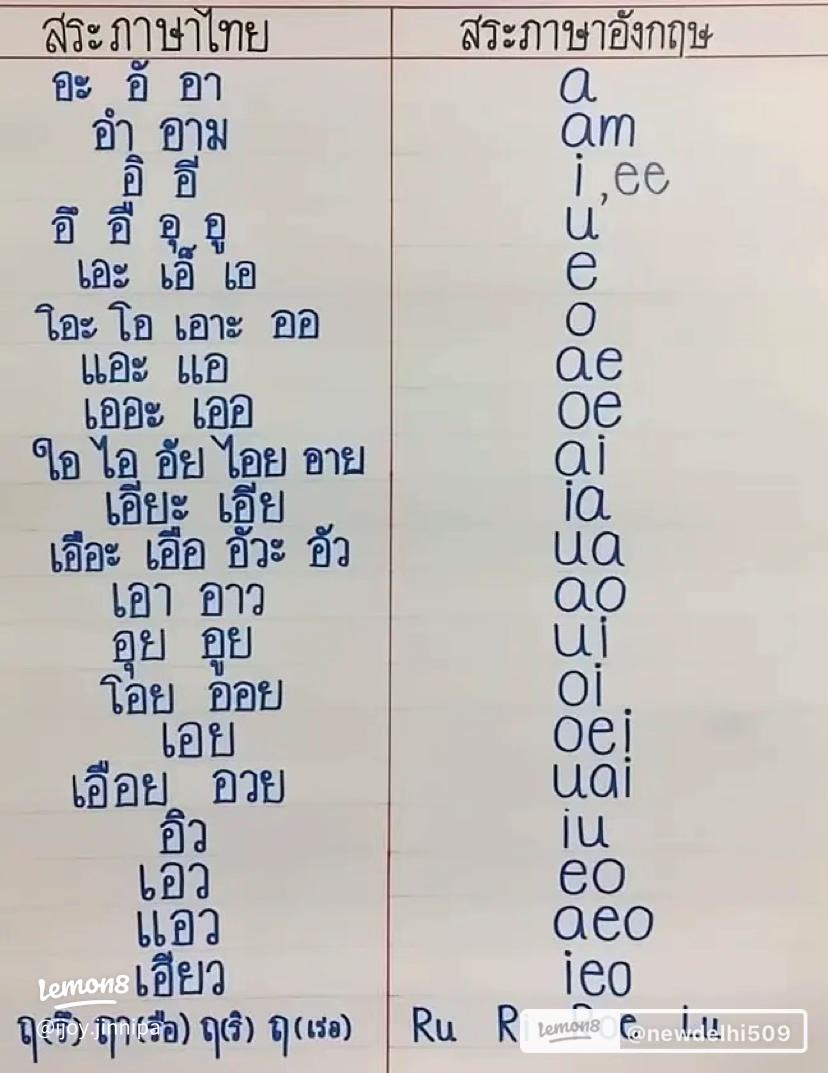 สระภาษาไทย สระภาษาอังกฤษ
อะ อั อา a
อำ อาม am
อิ อี i,ee
อึ อื อุ อู u
เอะ เอ็ เอ e
โอะ โอ เอาะ ออ o
แอะ แอ ae
เออะ เออ oe
ใอ ไอ อัย ไอย อาย ai
เอียะ เอีย ia
เอือะ เอือ อัวะ อัว ua
เอา อาว ao
อุย อูย ui
โอย ออย oi
เอย oei
เอือย อวย uai
อิว iu
เอว eo
แอว aeo
เอียว ieo
ฤ(รึ) ฤๅ(รือ) ฤ(ริ) ฤ(เรอ) Ru Ri
lemon8
@ijoy.jinnipa
lemon8 @newdelhi509